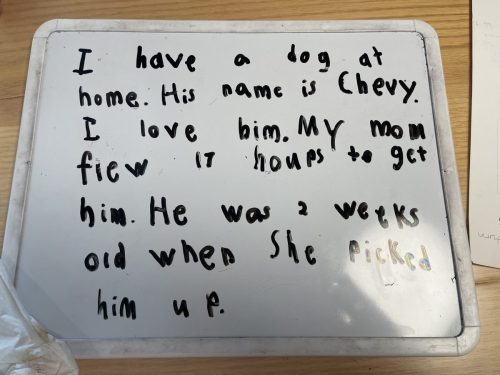 I have a dog at
home. His name is Chevy.
I love him. My mom
flew 17 hours to get
him. He was 2 weeks
old when She picked
him up.